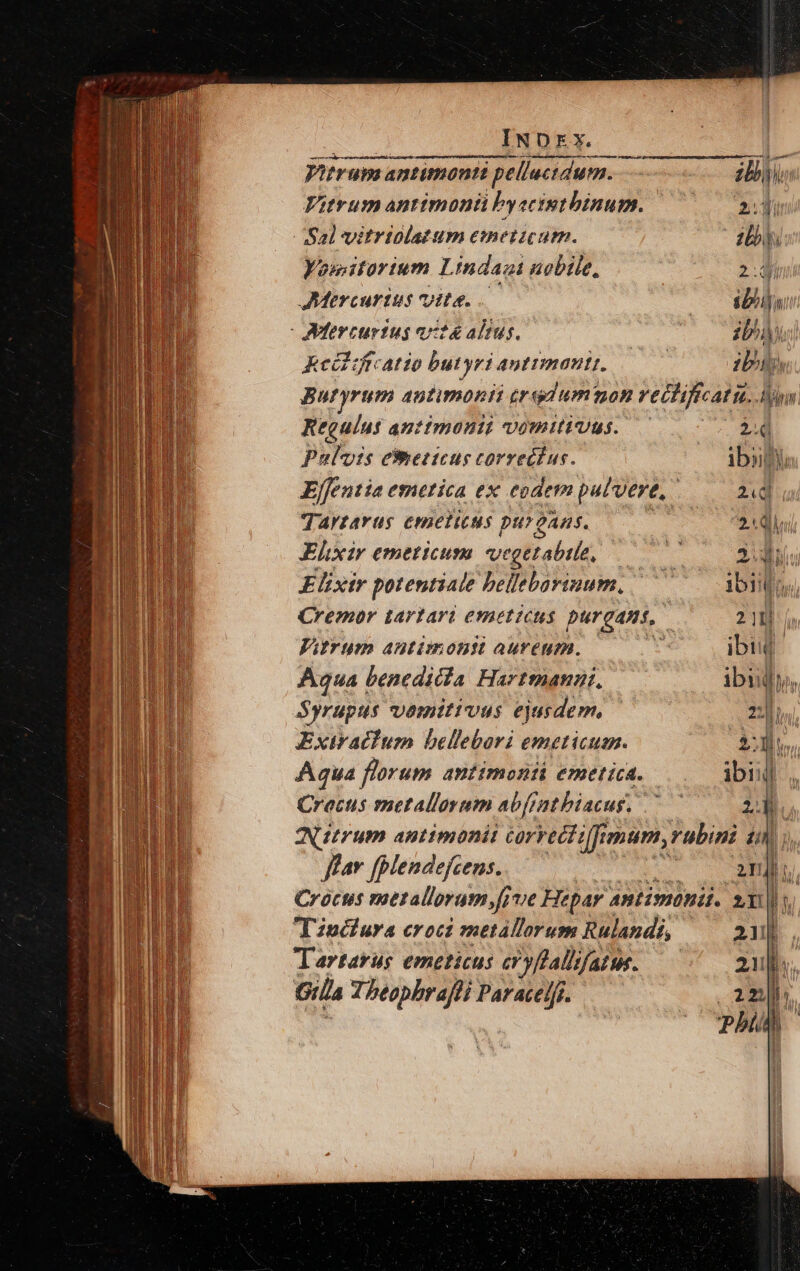 INDEX.
Vitrum antimonii pellucidum. ibi
Vitrum antimonii hyacinthinum. 2
Sal vitriolatum emeticum. ibi
Vomitorium Lindani nobile, 2
Mercurius vitæ. ibi
Mercurius vitæ alius. ibi
Rectificatio butyri antimonii. ibi
Butyrum antimonii crudum non rectificatū.
Regulus antimonii vomitivus. 2
Pulvis emeticus correctus. ibi
Essentia emetica ex eodem pulvere, 2
Tartarus emeticus purgans. 2
Elixir emeticum vegetabile, 2
Elixir potentiale helleborinum, ibi
Cremor tartari emeticus purgans, 21
Vitrum antimonii aureum. ibi
Aqua benedicta Hartmanni, ibi
Syrupus vomitivus ejusdem, 2
Extractum hellebori emeticum. 2
Aqua florum antimonii emetica. ibi
Crocus metallorum absinthiacus. 2
Nitrum antimonii correctissimum, rubini
star splendescens. 21
Crocus metallorum, sive Hepar antimonii. 21
Tinctura croci metallorum Rulandi, 21
Tartarus emeticus crystallisatus. 21
Gilla Theophrasti Paracelsi. 22